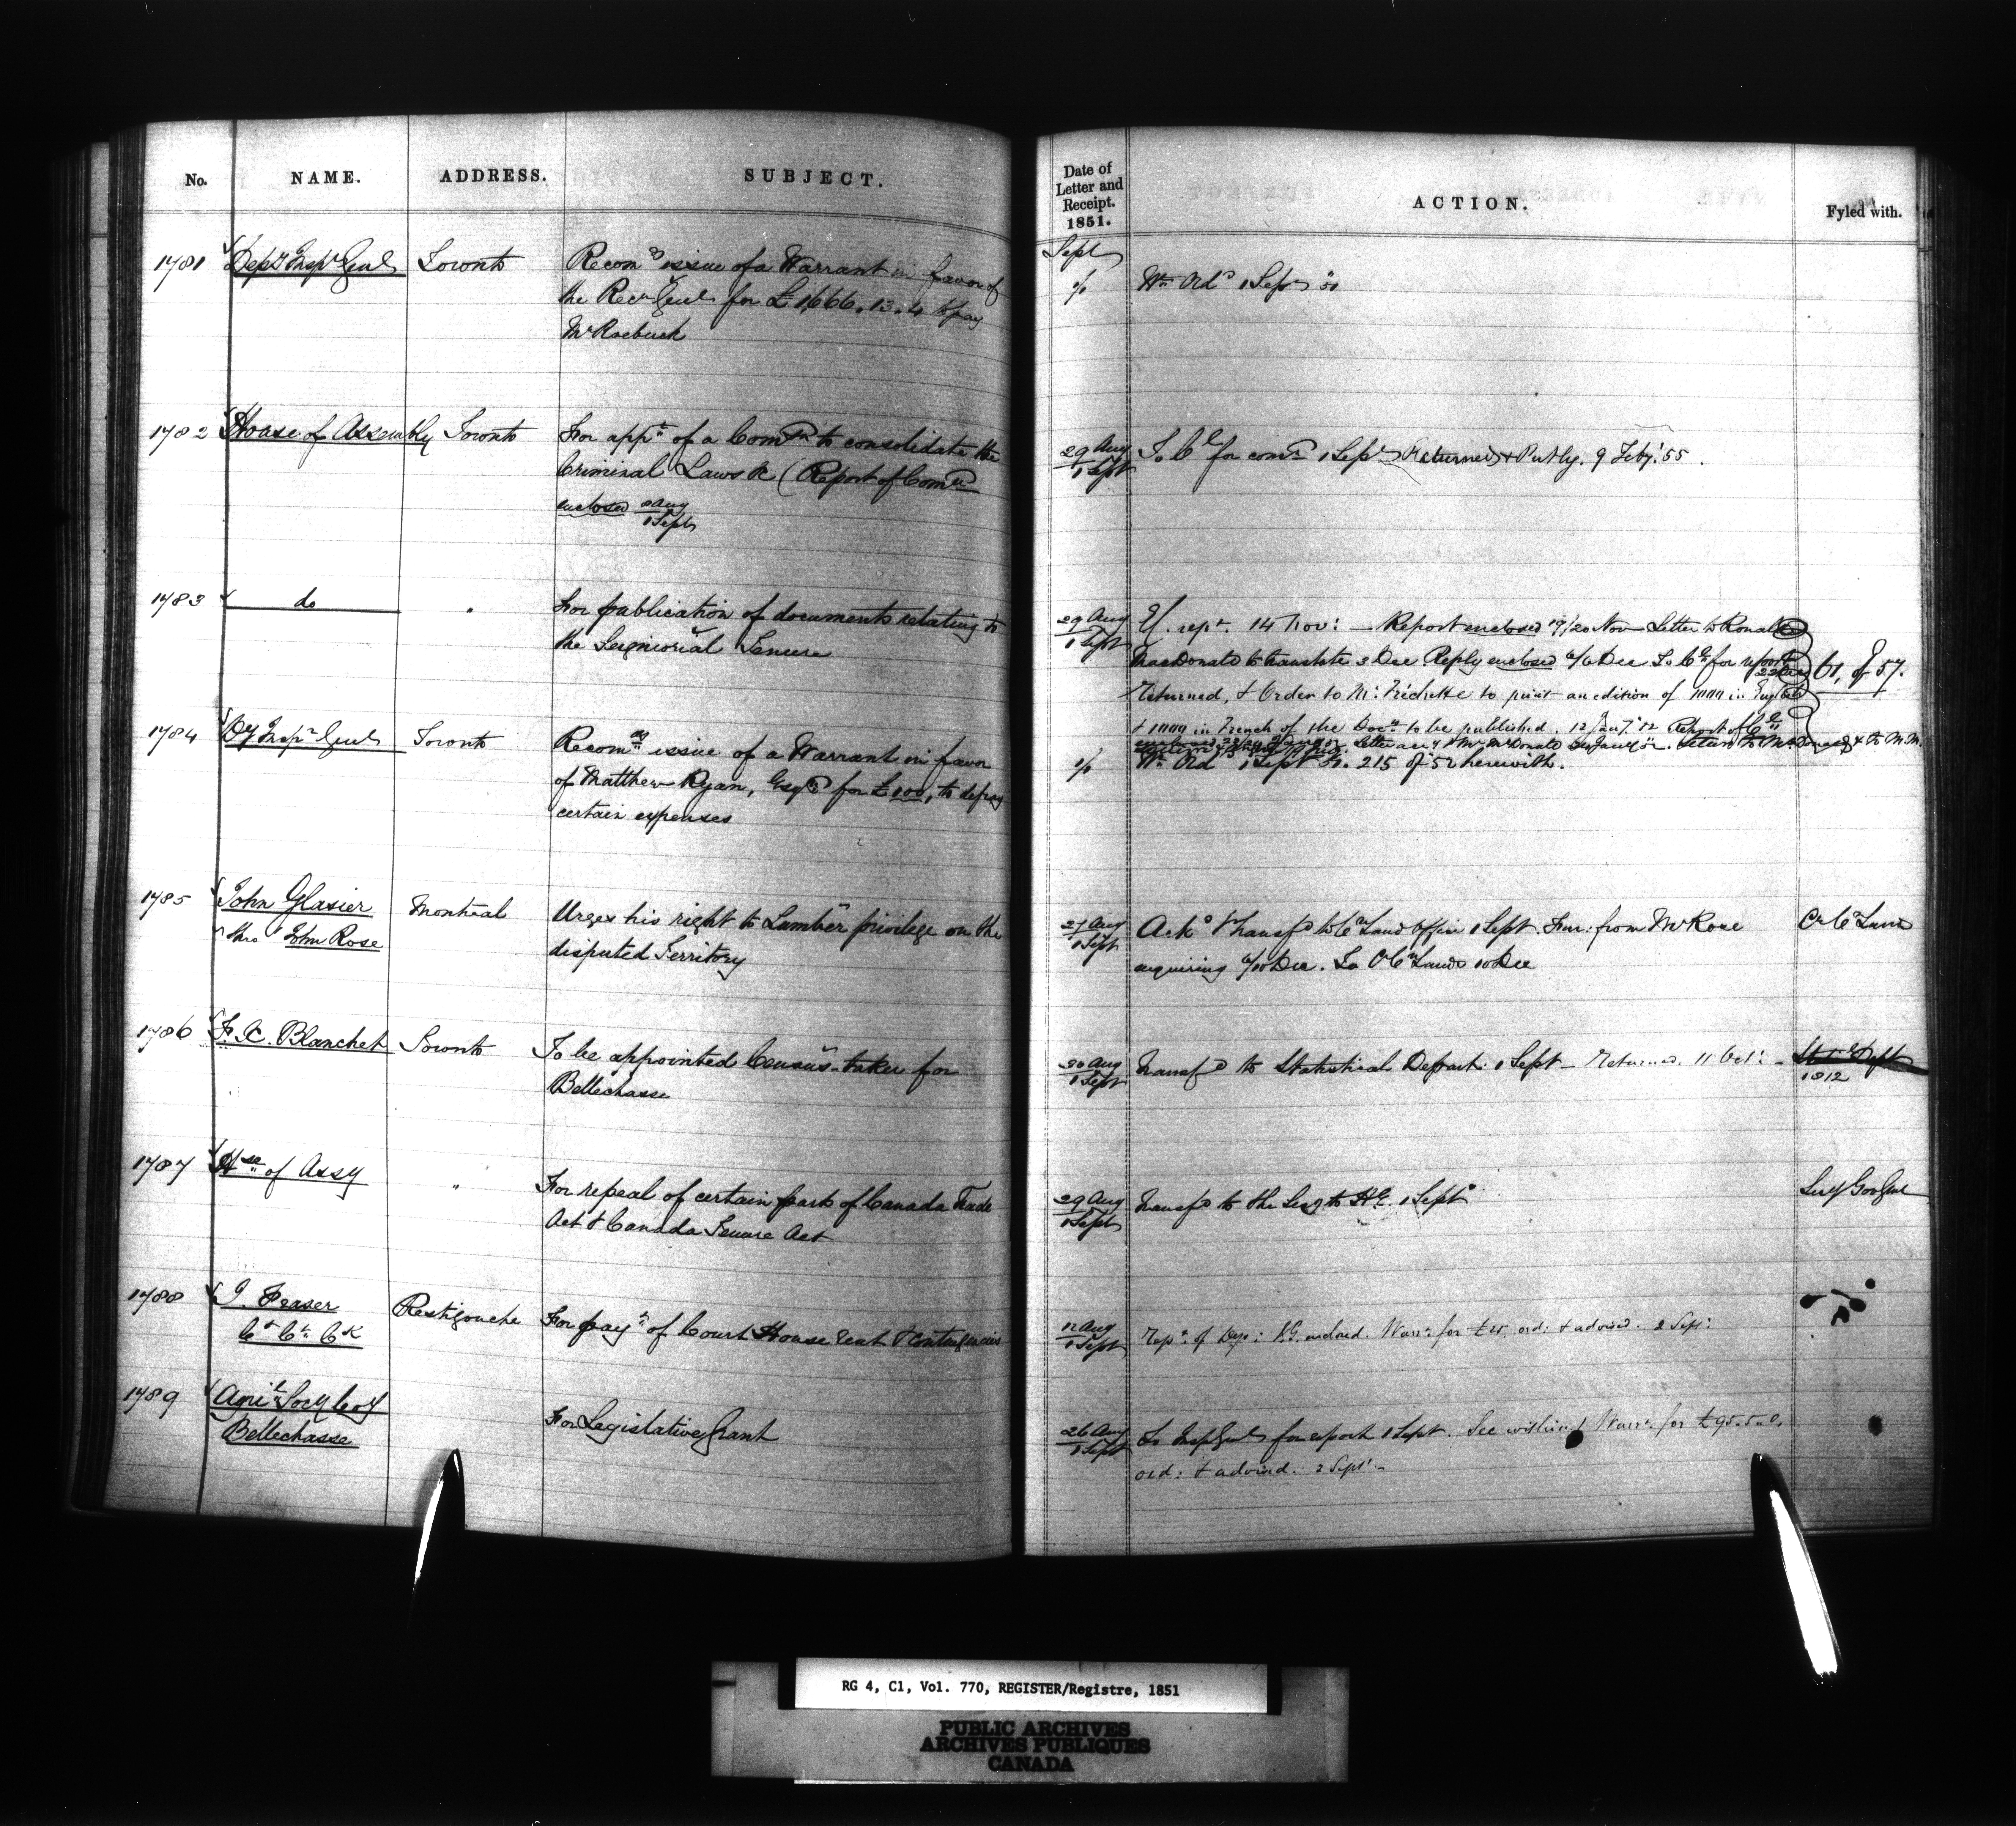 No. NAME. ADDRESS. SUBJECT.
1781 Depy Inspr Genl Toronto Recomg issue of a Warrant in favor of
the Recr Genl for £1,666.13.4 to pay
Mr Roebuck
1782 House of Assembly Toronto For appt of a Comn to consolidate the
Criminal Laws &c (Report of Comn
enclosed
1 Sept
1783 do "
For publication of documents relating to
the Seigniorial Tenure
1784 Dy Inspr Genl Toronto Recomg issue of a Warrant in favor
of Matthew Ryan, Esqr for £100, to defray
certain expenses
1785 John Glasier Montreal Urges his right to Lumber privilege on the
thro' John Rose disputed Territory
1786 F. X. Blanchet Toronto To be appointed Census-taker for
Bellechasse
1787 Hse of Assy " For repeal of certain part of Canada Trade
Act & Canada Tenure Act
1788 J. Fraser Restigouche For payt of Court House rent & contingencies
Ct Ct Ck
1789 Agril Socy Coy For Legislative Grant
Bellechasse
Date of
Letter and
Receipt.
1851.
ACTION.
Fyled with.
Sept
1/1 Wt Ord 1 Sept 51
29 Aug
1 Sept
To C E for comn 1 Sept Returned & Put by. 9 Feby '55.
29 Aug
1 Sept
rept. 14 Nov: — Report enclosed 19/20 Nov — Letter to Ronald
MacDonald to translate 3 Dec Reply enclosed 4/6 Dec To C E for report
Returned, & Order to Mr Fréchette to print an edition of 1000 in English
61, of 57.
& 1000 in French of the Docts to be published. 12 Jany. 52 Report of C E
1/1 Wt Ord 1 Sept 51. 215 of 52 herewith.
27 Aug
1 Sept
Ackd & transfd to Cn Land Office 1 Sept. Fur: from Mr Rose
enquiring 9/10 Dec. To Cr Cn Lands 10 Dec
Cr Cn Lands
30 Aug
1 Sept
Transfd to Statistical Depart: 1 Sept — Returned. 11 Oct: —
Statl Dept
1812
29 Aug
1 Sept
Transfd to the Secy to H.E. 1 Sept
Secy Gov Genl
12 Aug
1 Sept
Rept of Depy: I.G. enclosed. Warrt for ord: & advised. 2 Sept:
26 Aug
1 Sept
To Insp Genl for report 1 Sept. See within & Warrt for £95-5-0.
ord: & advised. 2 Sept. —
RG 4, C1, Vol. 770, REGISTER/Registre, 1851
PUBLIC ARCHIVES
ARCHIVES PUBLIQUES
CANADA